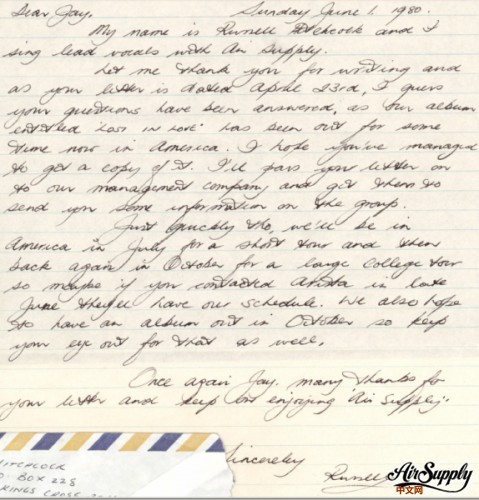 Dear Jay, Sunday June 1. 1980.
My name is Russell Hitchcock and I
sing lead vocals with Air Supply.
Let me thank you for writing and
as your letter is dated April 23rd, I guess
your questions have been answered, as our album
entitled 'LOST IN LOVE' has been out for some
time now in America. I hope you've managed
to get a copy of it. I'll pass your letter on
to our management company and get them to
send you some information on the group.
Just quickly tho, we'll be in
America in July for a short tour and then
back again in October for a large College tour
so maybe if you contacted Arista in late
June they'll have our schedule. We also hope
to have an album out in October so keep
your eye out for that as well.
Once again Jay, many thanks for
your letter and keep on enjoying 'Air Supply'.
Sincerely
Russell
HITCHCOCK
BOX 228
KINGS CROSS
AirSupply
中文网